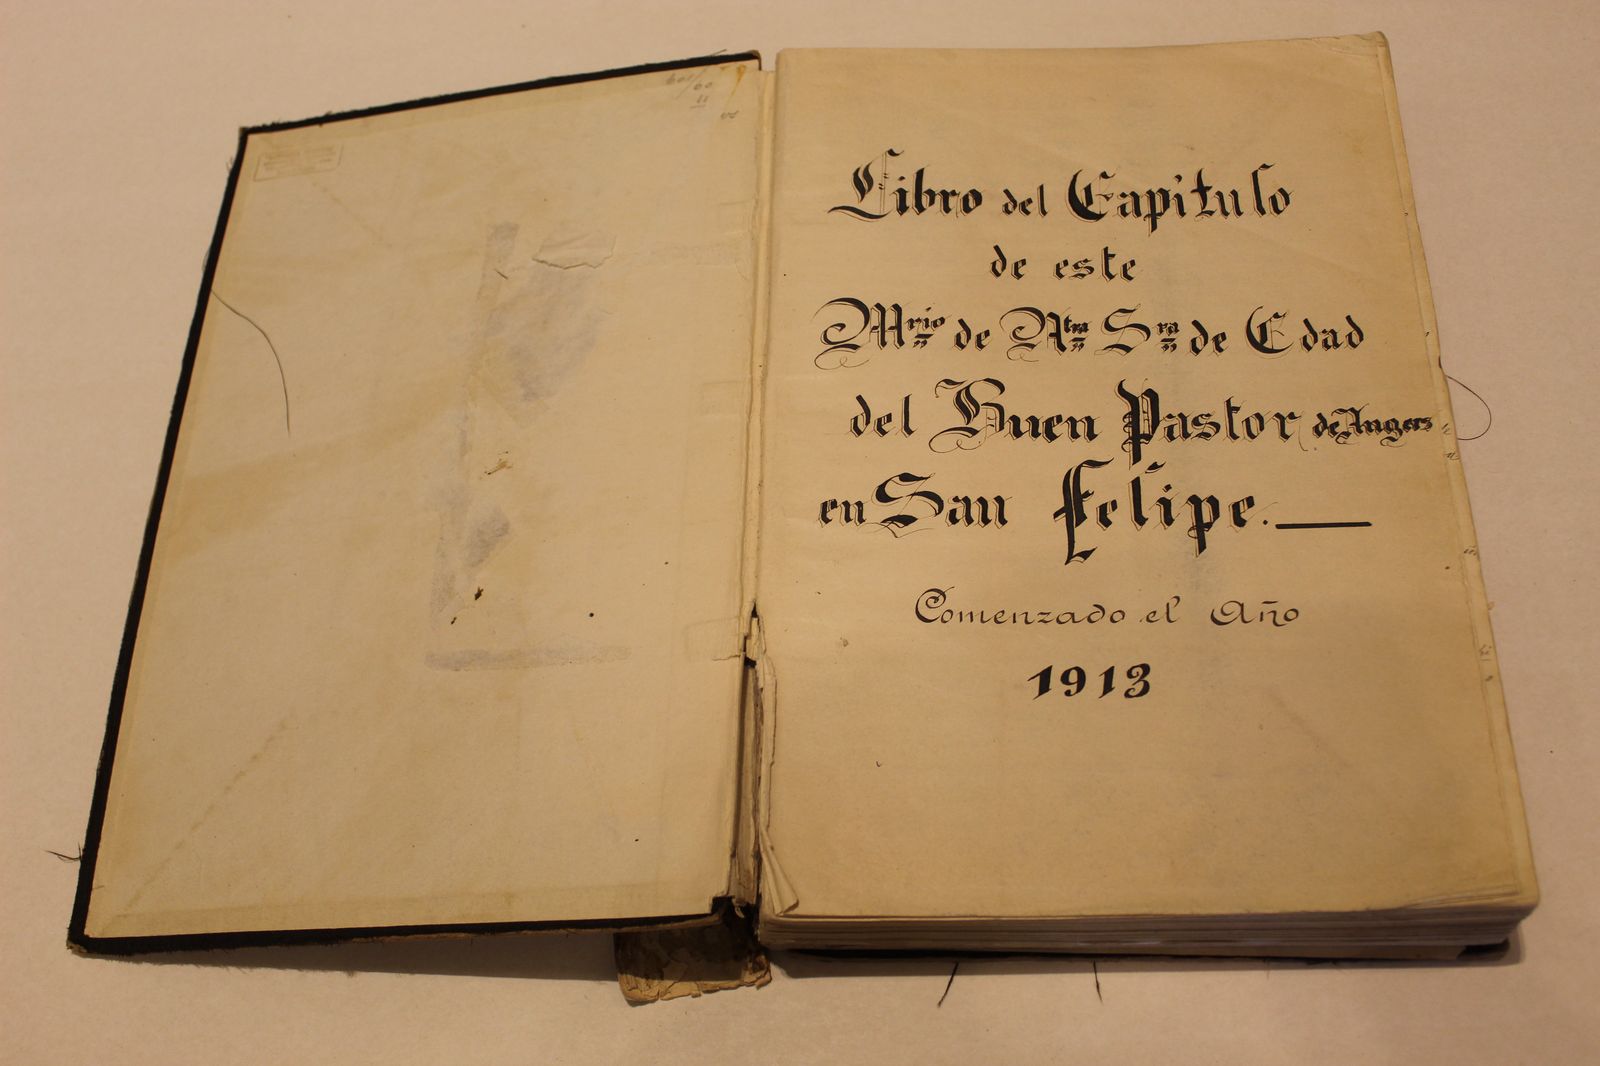 Libro del Capítulo
de este
Mrio de Ntra Sra de Cdad
del Buen Pastor de Angers
en San Felipe.
Comenzado el Año
1913